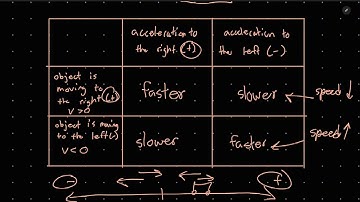 acceleration to
the right (+)
acceleration to
the left (-)
object is
moving to
the right (+)
v > 0
faster
slower
speed ↓
object is moving
to the left (-)
v < 0
slower
faster
speed ↑
-
+